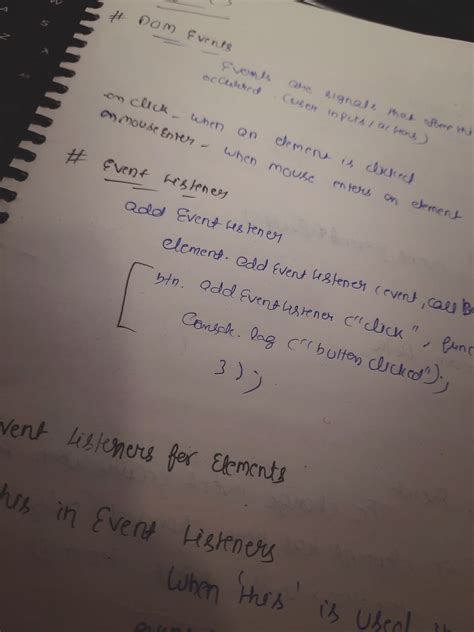 # DOM Events
Events are signals that something
occurred. (user inputs / actions)
onclick - when an element is clicked
onmouseEnter - when mouse enters an element
# Event Listener
add EventListener
element. addEventListener (event, call B
btn. addEventListener ("click", func
Console. log ("button clicked");
});
vent Listeners for Elements
this in Event Listeners
When 'this' is used